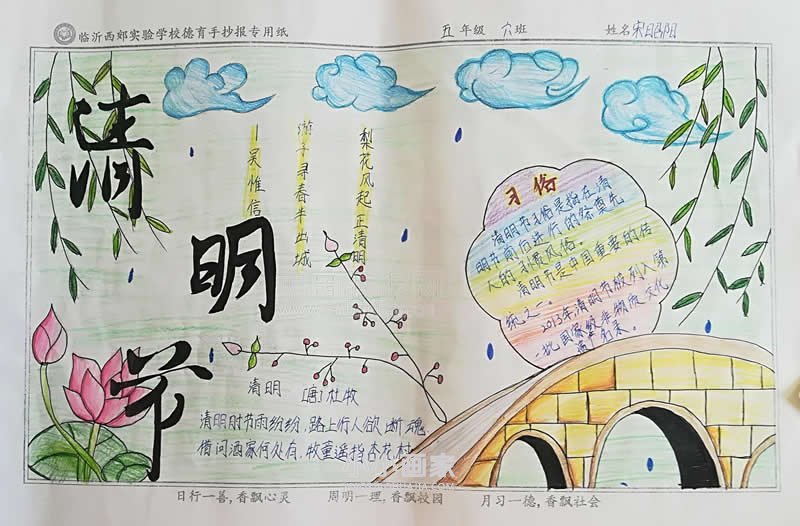 临沂西郊实验学校德育手抄报专用纸
五年级 六班 姓名宋昭阳
清明节
梨花风起正清明
游子寻春半出城
吴惟信
习俗
清明节习俗是指在清
明节前后进行的祭奠先
人的习惯风俗。
清明节是中国重要的传
统之一。
2013年清明节被列入第
一批国家级非物质文化
遗产名录。
清明 [唐]杜牧
清明时节雨纷纷,路上行人欲断魂
借问酒家何处有,牧童遥指杏花村
日行一善,香飘心灵 周明一理,香飘校园 月习一德,香飘社会